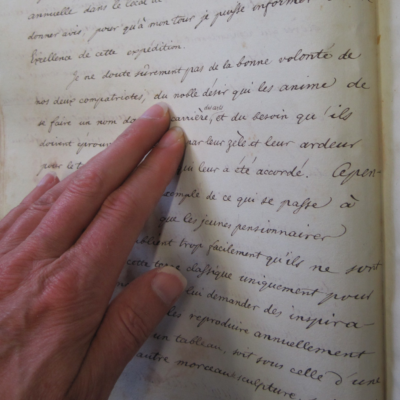 annuelle dans le local de
donner avis: pour qu'à mon tour je puisse informer
Excellence de cette expédition.
Je ne doute surement pas de la bonne volonté de
nos deux compatriotes, du noble désir qui les anime de
se faire un nom carrière, et du besoin que ils
par leur zèle et leur ardeur
pour le leur a été accordé. Cepen-
exemple de ce qui se passe à
que les jeunes pensionnaires
trop facilement qu'ils ne sont
cette terre classique uniquement pour
lui demander des inspira-
les reproduire annuellement
un tableau, soit sous celle d'une
autre morceau sculpture,